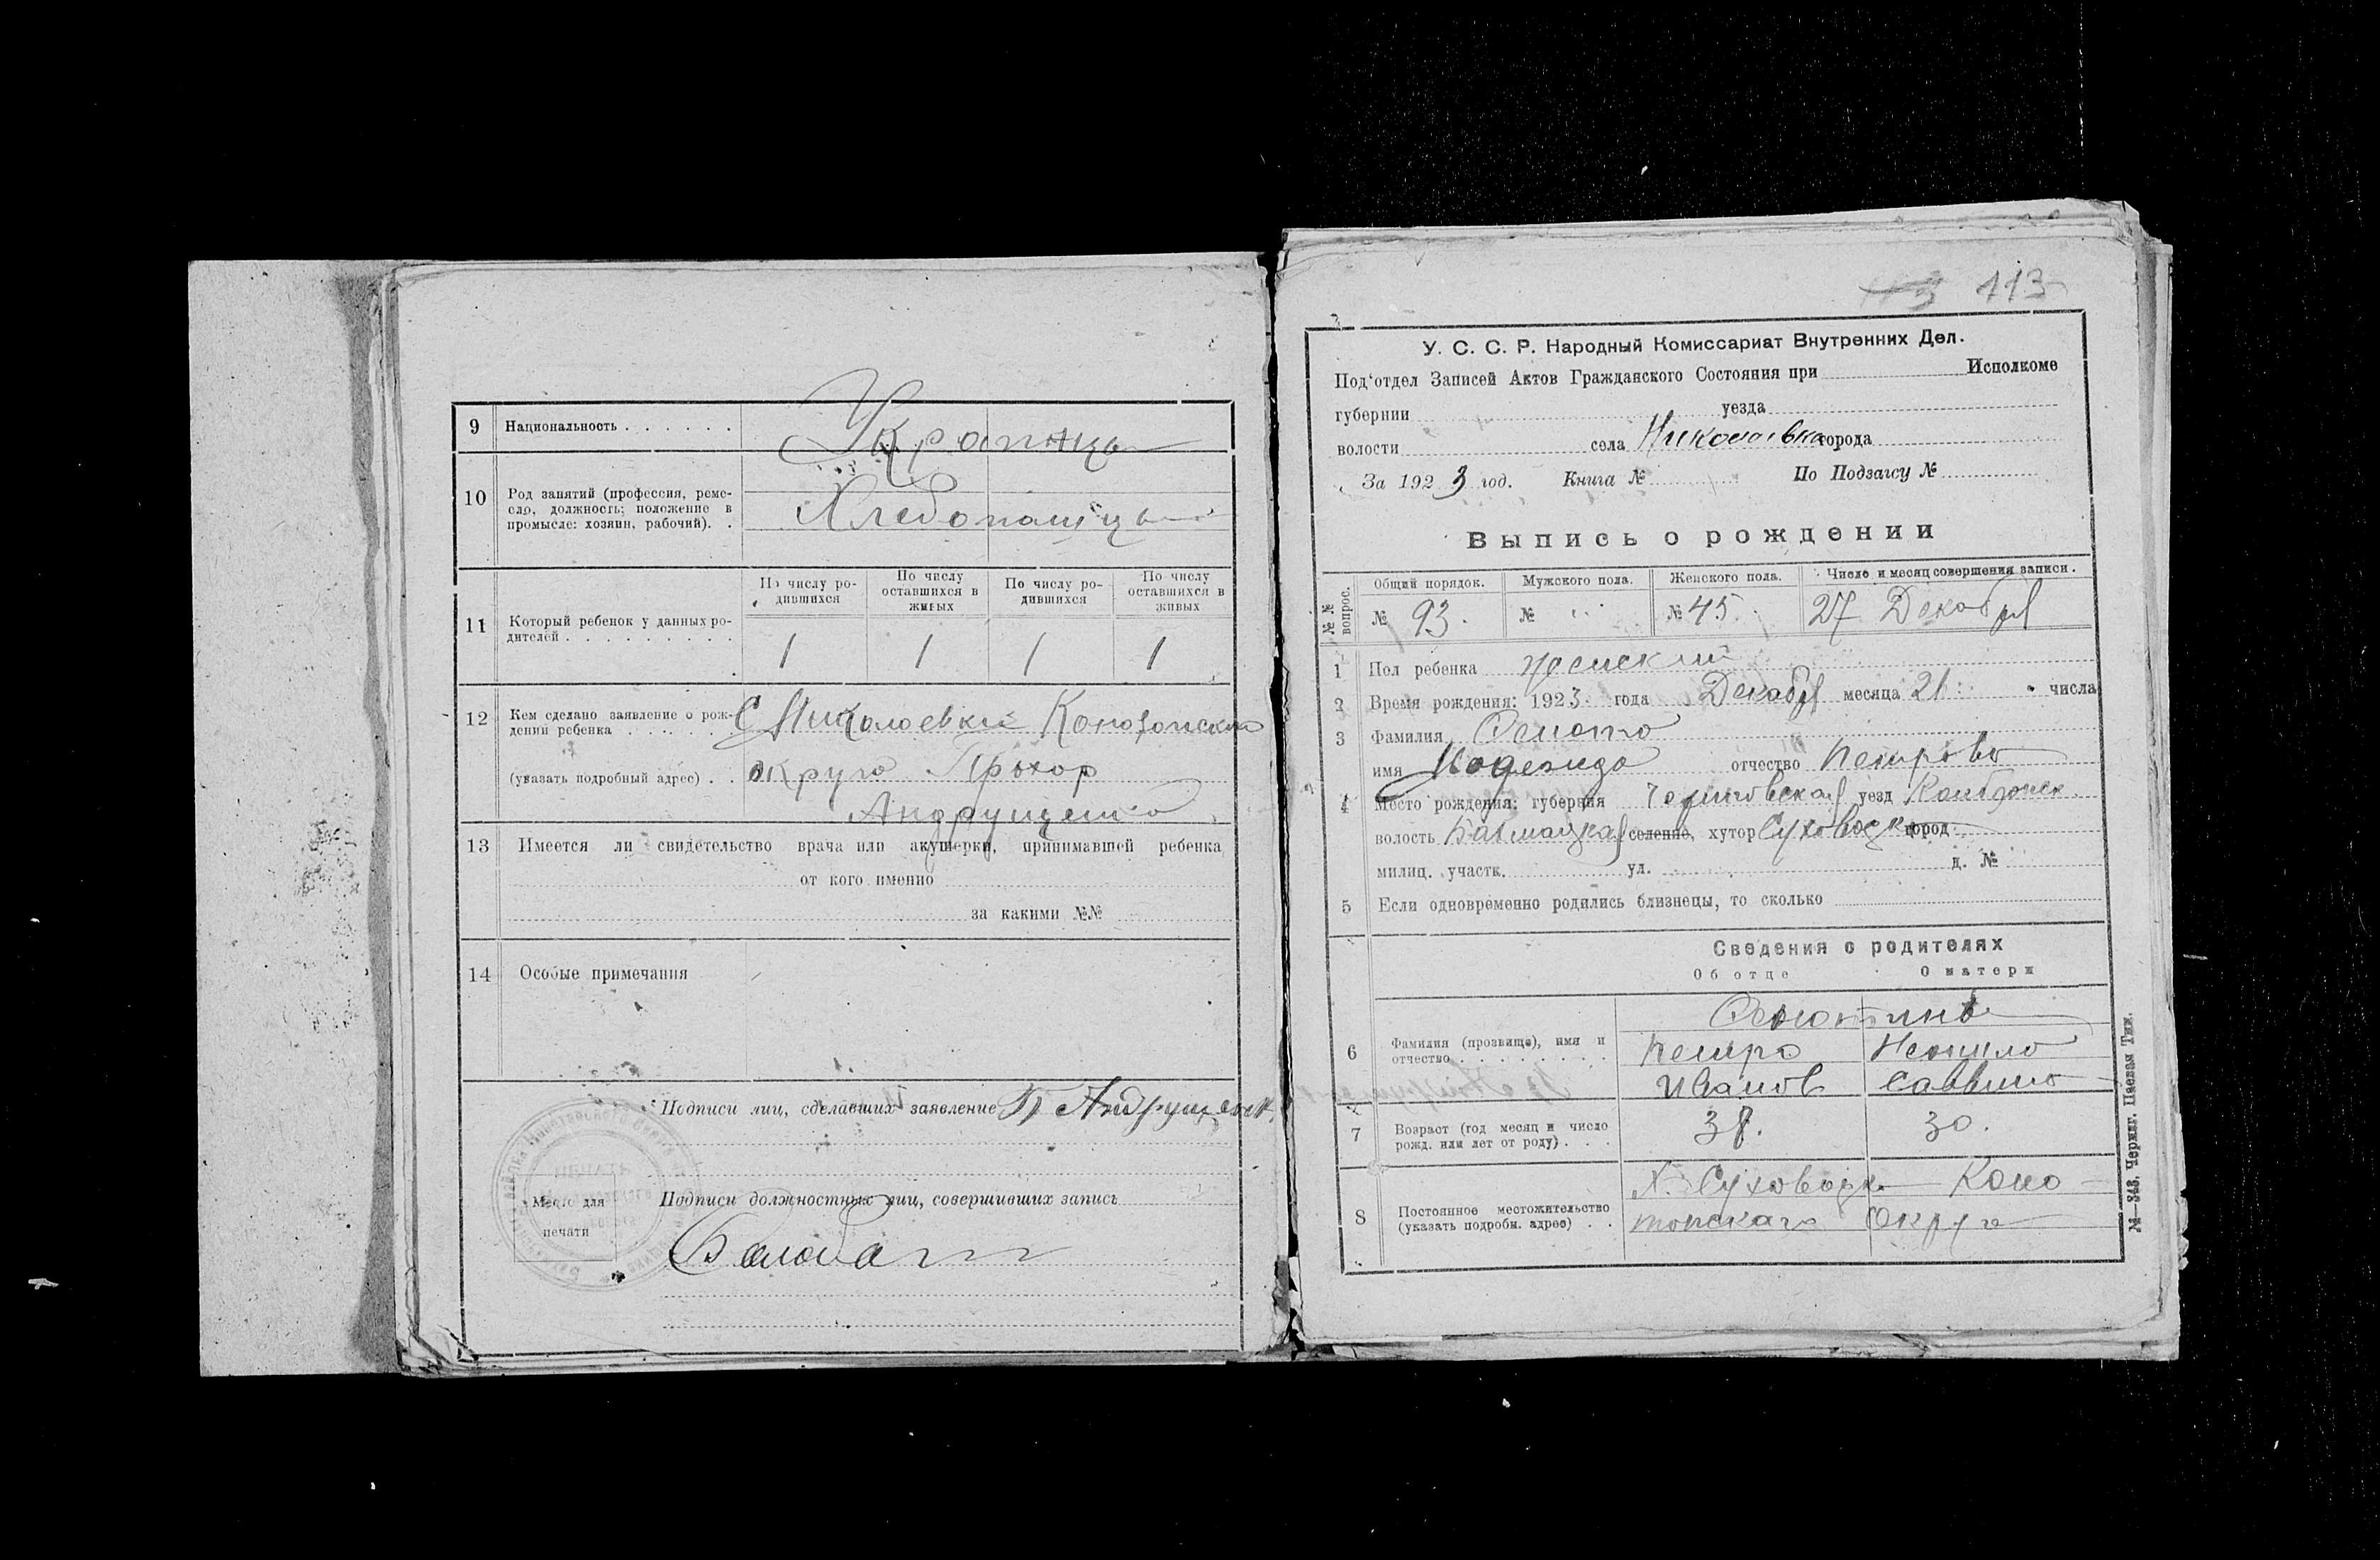 9 Национальность . . . . . . Украинцы
10 Род занятий (профессия, реме-
сло, должность; положение в
промысле: хозяин, рабочий). .
Хлебопашцы
11 Который ребенок у данных ро-
дителей . . . . . . . . .
По числу ро-
дившихся
По числу
оставшихся в
живых
По числу ро-
дившихся
По числу
оставшихся в
живых
1 1 1 1
12 Кем сделано заявление о рож-
дении ребенка . . . . . . С Николоевки
(указать подробный адрес) . . округа Прохор
Андрущенко
13 Имеется ли свидетельство врача или акушерки, принимавшей ребенка
от кого именно
за какими №№
14 Особые примечания
Подписи лиц, сделавших заявление П Андрущенк
Место для
печати
Подписи должностных лиц, совершивших запись
113
У. С. С. Р. Народный Комиссариат Внутренних Дел.
Под'отдел Записей Актов Гражданского Состояния при Исполкоме
губернии уезда
волости села Николаевка города
За 1923 год. Книга № По Подзагсу №
Выпись о рождении
№№ вопрос.
Общий порядок. Мужского пола. Женского пола. Число и месяц совершения записи.
№ 93. № № 45. 27 Декабря
1 Пол ребенка женский
2 Время рождения: 1923 года Декабря месяца 21 числа
3 Фамилия
имя Надежда отчество Петрова
4 Место рождения: губерния Черниговская уезд
волость Бахмацкая селение, хутор Суховодка город
милиц. участк. ул. д. №
5 Если одновременно родились близнецы, то сколько
Сведения о родителях
Об отце О матери
6 Фамилия (прозвище), имя и
отчество . . . . . . . .
Петро
Иванов Саввина
7 Возраст (год месяц и число
рожд. или лет от роду) . . .
38. 30.
8 Постоянное местожительство
(указать подробн. адрес) . .
Х. Суховодка Коно-
топскаго Округа
№—343. Черниг. Паевая Тип.